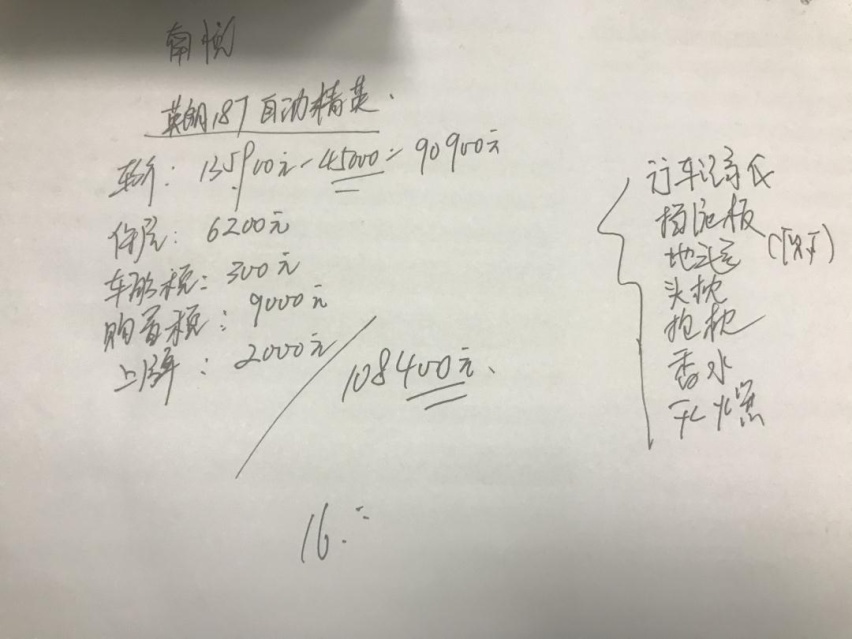 英朗18T自动精英.
车价: 135900元-45000=90900元
保险: 6200元
车船税: 300元
购置税: 9000元
上牌: 2000元
108400元.
16.
行车记录仪
挡泥板
地毯
头枕
抱枕
香水
灭火器